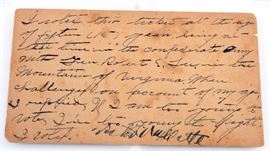 I voted this ticket at the age
of fifteen (15) years being at
that time in the confederate army
with Gen Robert E. Lee, in the
Mountains of Virginia. When
challenged on account of my age
I replied, If I am too young to
vote, I am too young to fight
I voted.